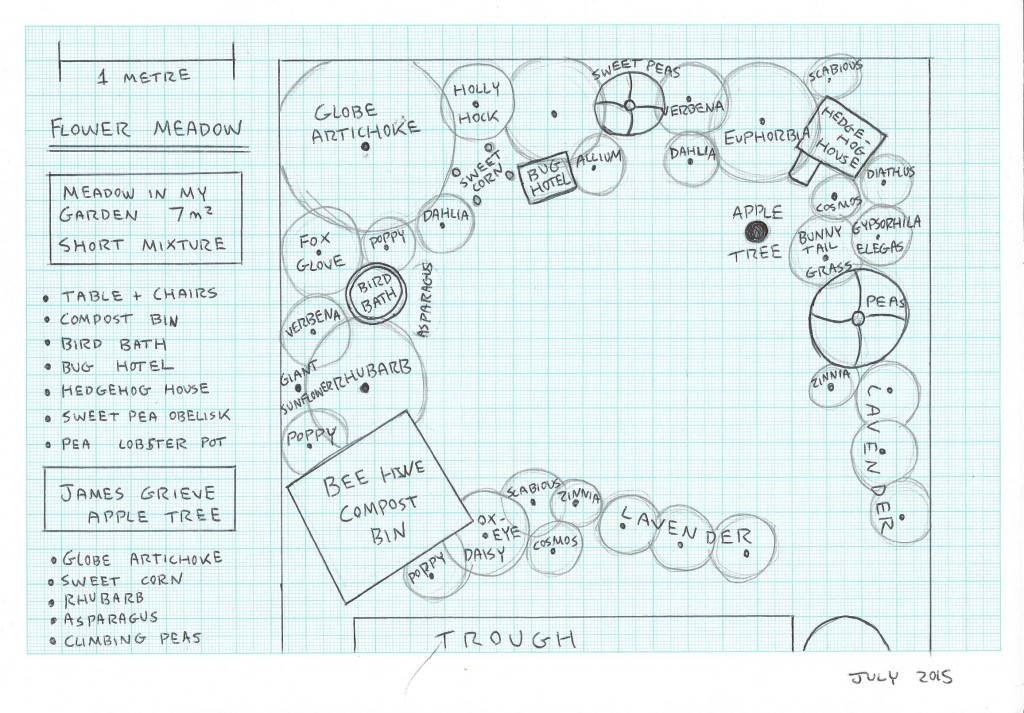 1 METRE
FLOWER MEADOW
MEADOW IN MY
GARDEN 7m²
SHORT MIXTURE
• TABLE + CHAIRS
• COMPOST BIN
• BIRD BATH
• BUG HOTEL
• HEDGEHOG HOUSE
• SWEET PEA OBELISK
• PEA LOBSTER POT
JAMES GRIEVE
APPLE TREE
• GLOBE ARTICHOKE
• SWEET CORN
• RHUBARB
• ASPARAGUS
• CLIMBING PEAS
GLOBE
ARTICHOKE
HOLLY
HOCK
SWEET
CORN
SWEET PEAS
VERBENA
EUPHORBIA
SCABIOUS
HEDGE-
HOG
HOUSE
BUG
HOTEL
ALLIUM
DAHLIA
DIATHUS
COSMOS
GYPSORHILA
ELEGAS
APPLE
TREE
BUNNY
TAIL
GRASS
DAHLIA
FOX
GLOVE
POPPY
BIRD
BATH
ASPARAGUS
VERBENA
PEAS
GIANT
SUNFLOWER
RHUBARB
ZINNIA
LAVENDER
POPPY
BEE HIVE
COMPOST
BIN
SCABIOUS
ZINNIA
OX-
EYE
DAISY
COSMOS
LAVENDER
POPPY
TROUGH
JULY 2015